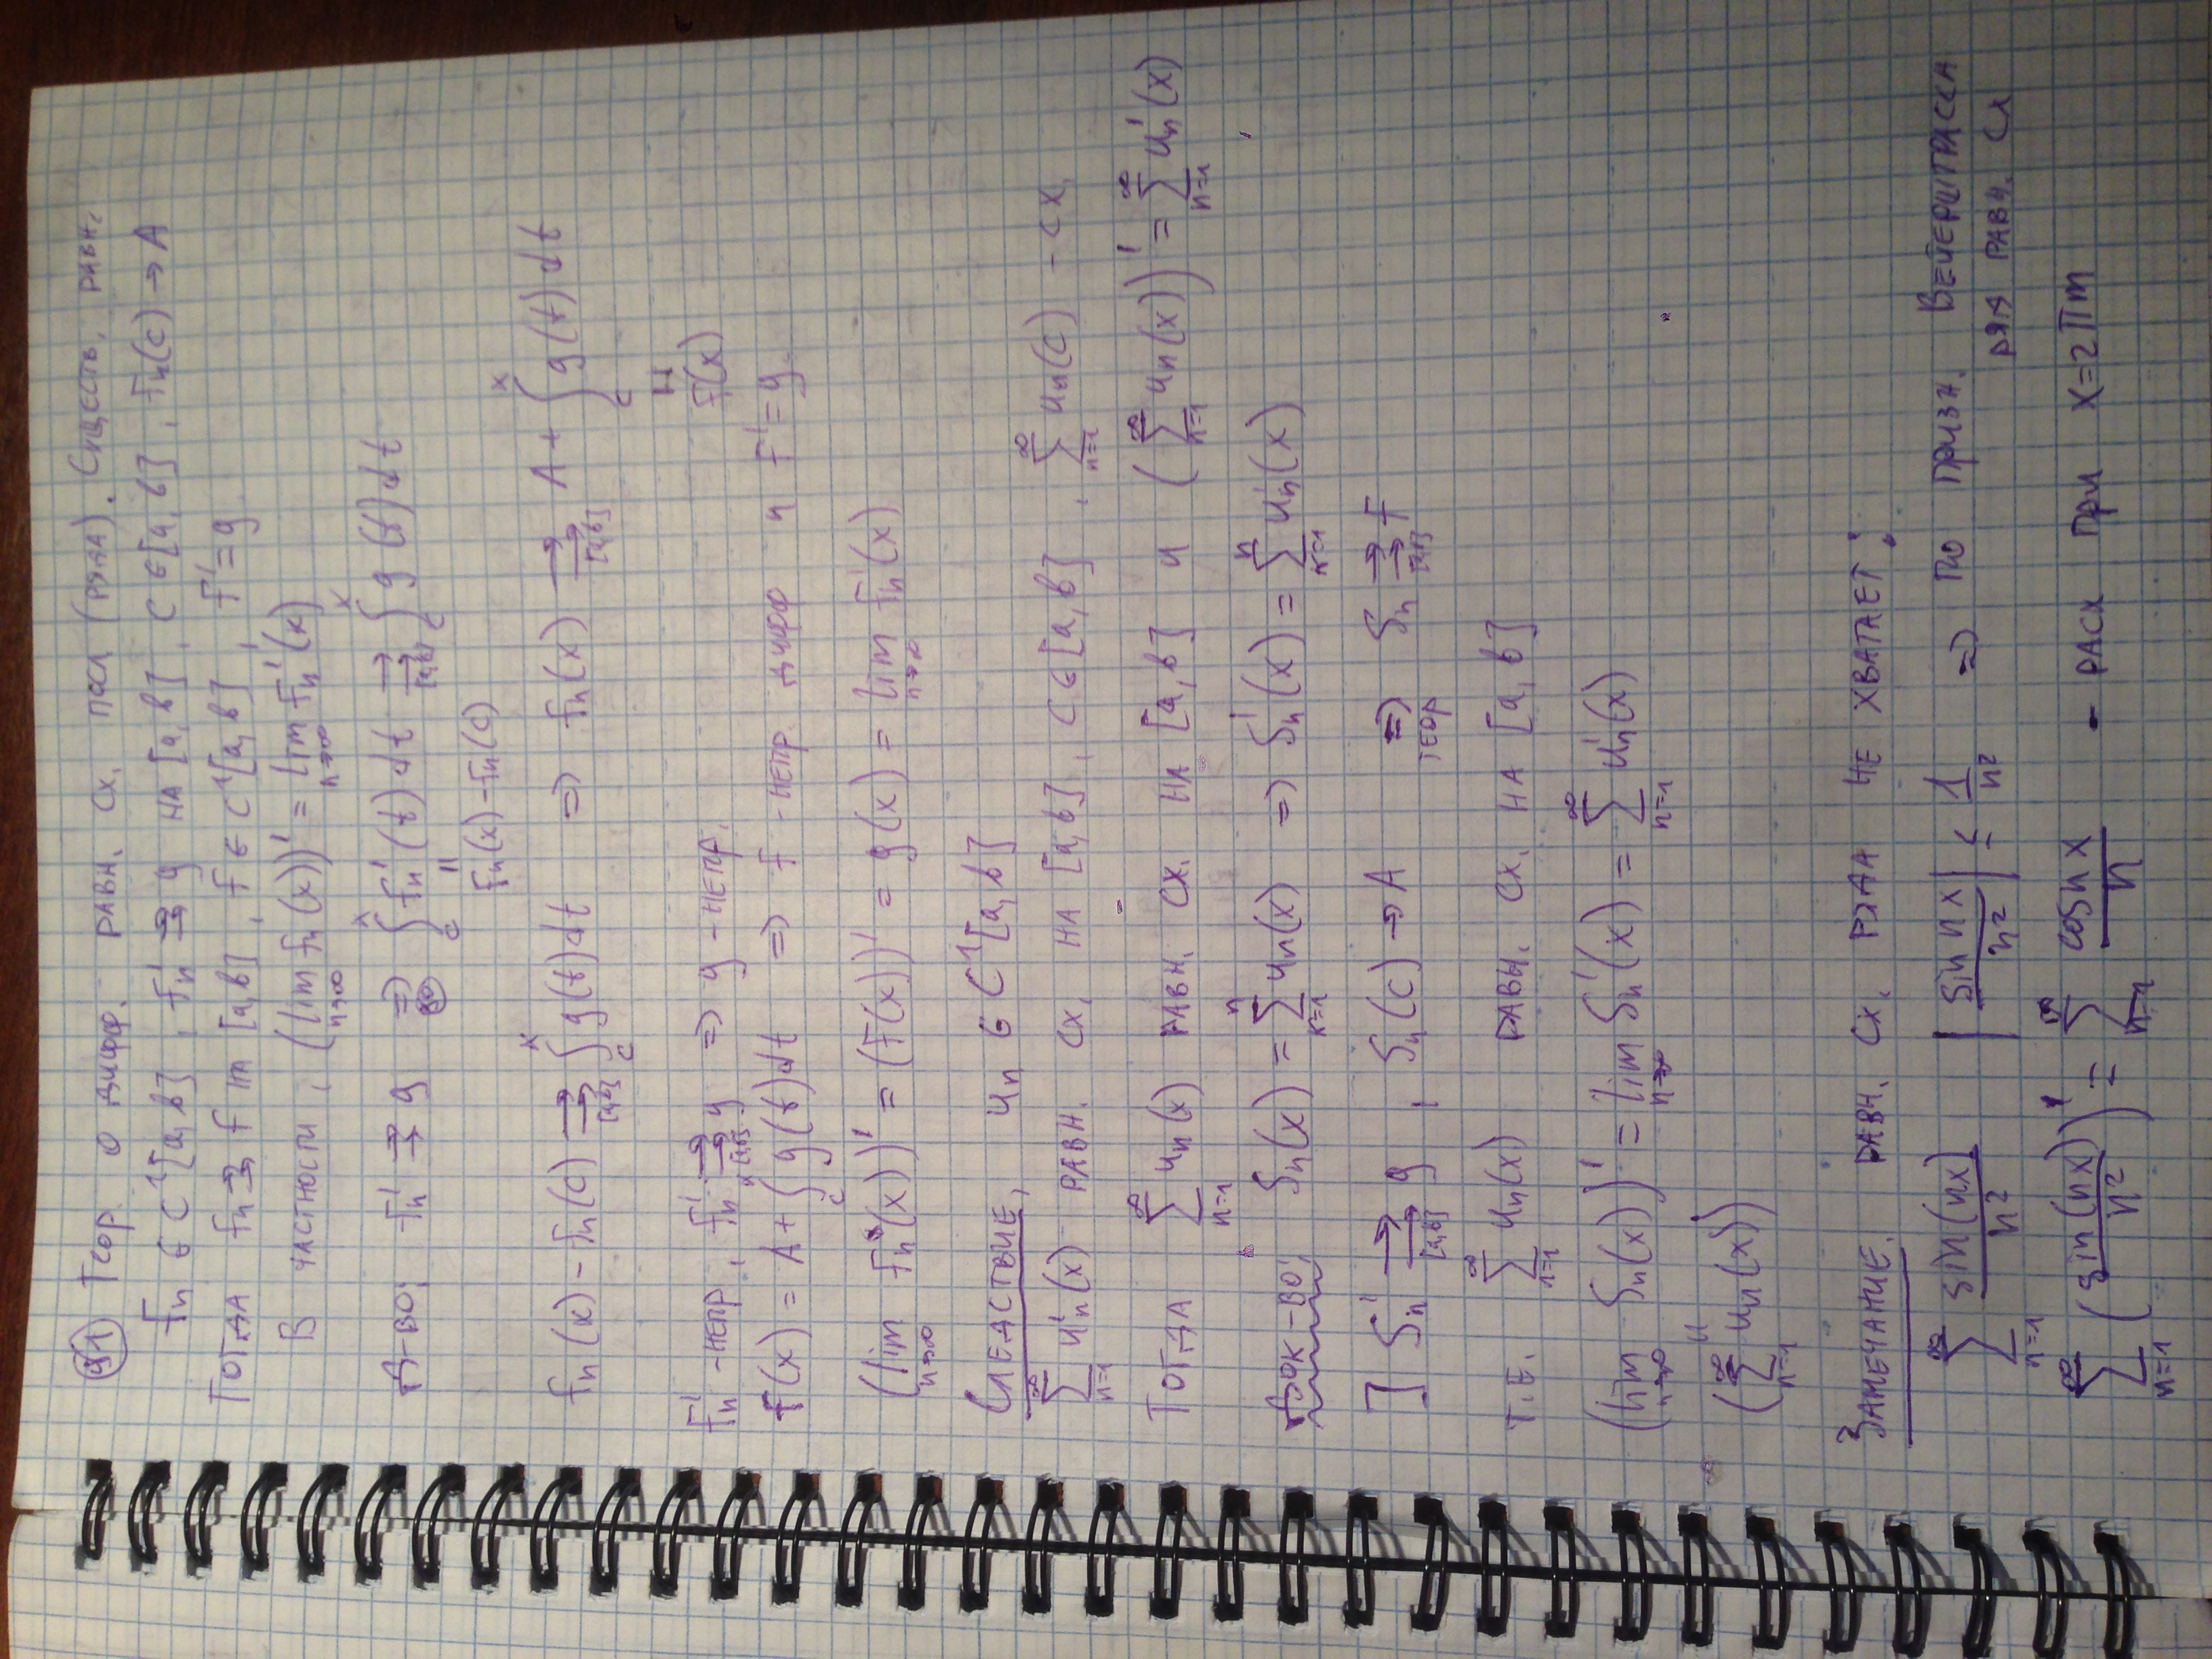 91 Теор. о дифф. равн. сх. посл (ряда). Существ. равн.
fₙ ∈ C¹[a, b], fₙ' ⇉ g на [a, b], c ∈ [a, b], fₙ(c) → A
Тогда fₙ ⇉ f на [a, b], f ∈ C¹[a, b], f' = g
В частности, (lim_{n→∞} fₙ(x))' = lim_{n→∞} fₙ'(x)
Д-во: fₙ' ⇉ g ⇒ ∫_c^x fₙ'(t)dt ⇉_{[a,b]} ∫_c^x g(t)dt
|| fₙ(x) - fₙ(c)
fₙ(x) - fₙ(c) ⇉_{[a,b]} ∫_c^x g(t)dt ⇒ fₙ(x) ⇉_{[a,b]} A + ∫_c^x g(t)dt
|| f(x)
fₙ' - непр, fₙ' ⇉_{[a,b]} g ⇒ g - непр.
f(x) = A + ∫_c^x g(t)dt ⇒ f - непр. дифф и f' = g.
(lim_{n→∞} fₙ(x))' = (f(x))' = g(x) = lim_{n→∞} fₙ'(x)
Следствие, uₙ ∈ C¹[a, b]
∑_{n=1}^∞ uₙ'(x) равн. сх. на [a, b], c ∈ [a, b], ∑_{n=1}^∞ uₙ(c) - сх.
Тогда ∑_{n=1}^∞ uₙ(x) равн. сх. на [a, b] и (∑_{n=1}^∞ uₙ(x))' = ∑_{n=1}^∞ uₙ'(x)
Док-во: Sₙ(x) = ∑_{k=1}^n uₙ(x) ⇒ Sₙ'(x) = ∑_{k=1}^n uₙ'(x)
] Sₙ' ⇉_{[a,b]} g, Sₙ(c) → A ⇒_{теор} Sₙ ⇉_{[a,b]} f
т.е. ∑_{n=1}^∞ uₙ(x) равн. сх. на [a, b]
(lim_{n→∞} Sₙ(x))' = lim_{n→∞} Sₙ'(x) = ∑_{n=1}^∞ uₙ'(x)
||
(∑_{n=1}^∞ uₙ(x))'
Замечание. равн. сх. ряда не хватает:
∑_{n=1}^∞ sin(nx)/n² |sin nx/n²| ≤ 1/n² ⇒ по призн. Вейерштрасса
ряд равн. сх
∑_{n=1}^∞ (sin(nx)/n²)' = ∑_{n=1}^∞ cosnx/n - расх при x=2πm